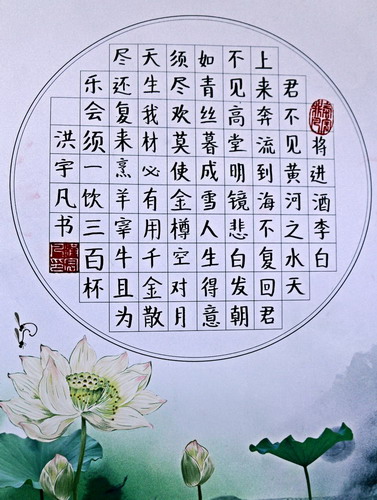 将进酒李白
君不见黄河之水天
上来奔流到海不复回君
不见高堂明镜悲白发朝
如青丝暮成雪人生得意
须尽欢莫使金樽空对月
天生我材必有用千金散
尽还复来烹羊宰牛且为
乐会须一饮三百杯
洪宇凡书